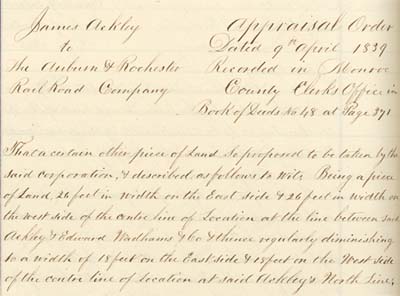 James Ackley
to
The Auburn & Rochester
Rail Road Company
Appraisal Order
Dated 9th April 1839
Recorded in Monroe
County Clerks Office in
Book of Deeds No 48 at Page 371
That a certain other piece of Land So proposed to be taken by the
said corporation, & described as follows to wit: Being a piece
of Land, 26 feet in width on the East side & 26 feet in width on
the west side of the centre line of Location at the line between said
Ackley & Edward Wadhams & Co & thence regularly diminishing
to a width of 18 feet on the East side & 18 feet on the West side
of the centre line of location at said Ackley's North Line;